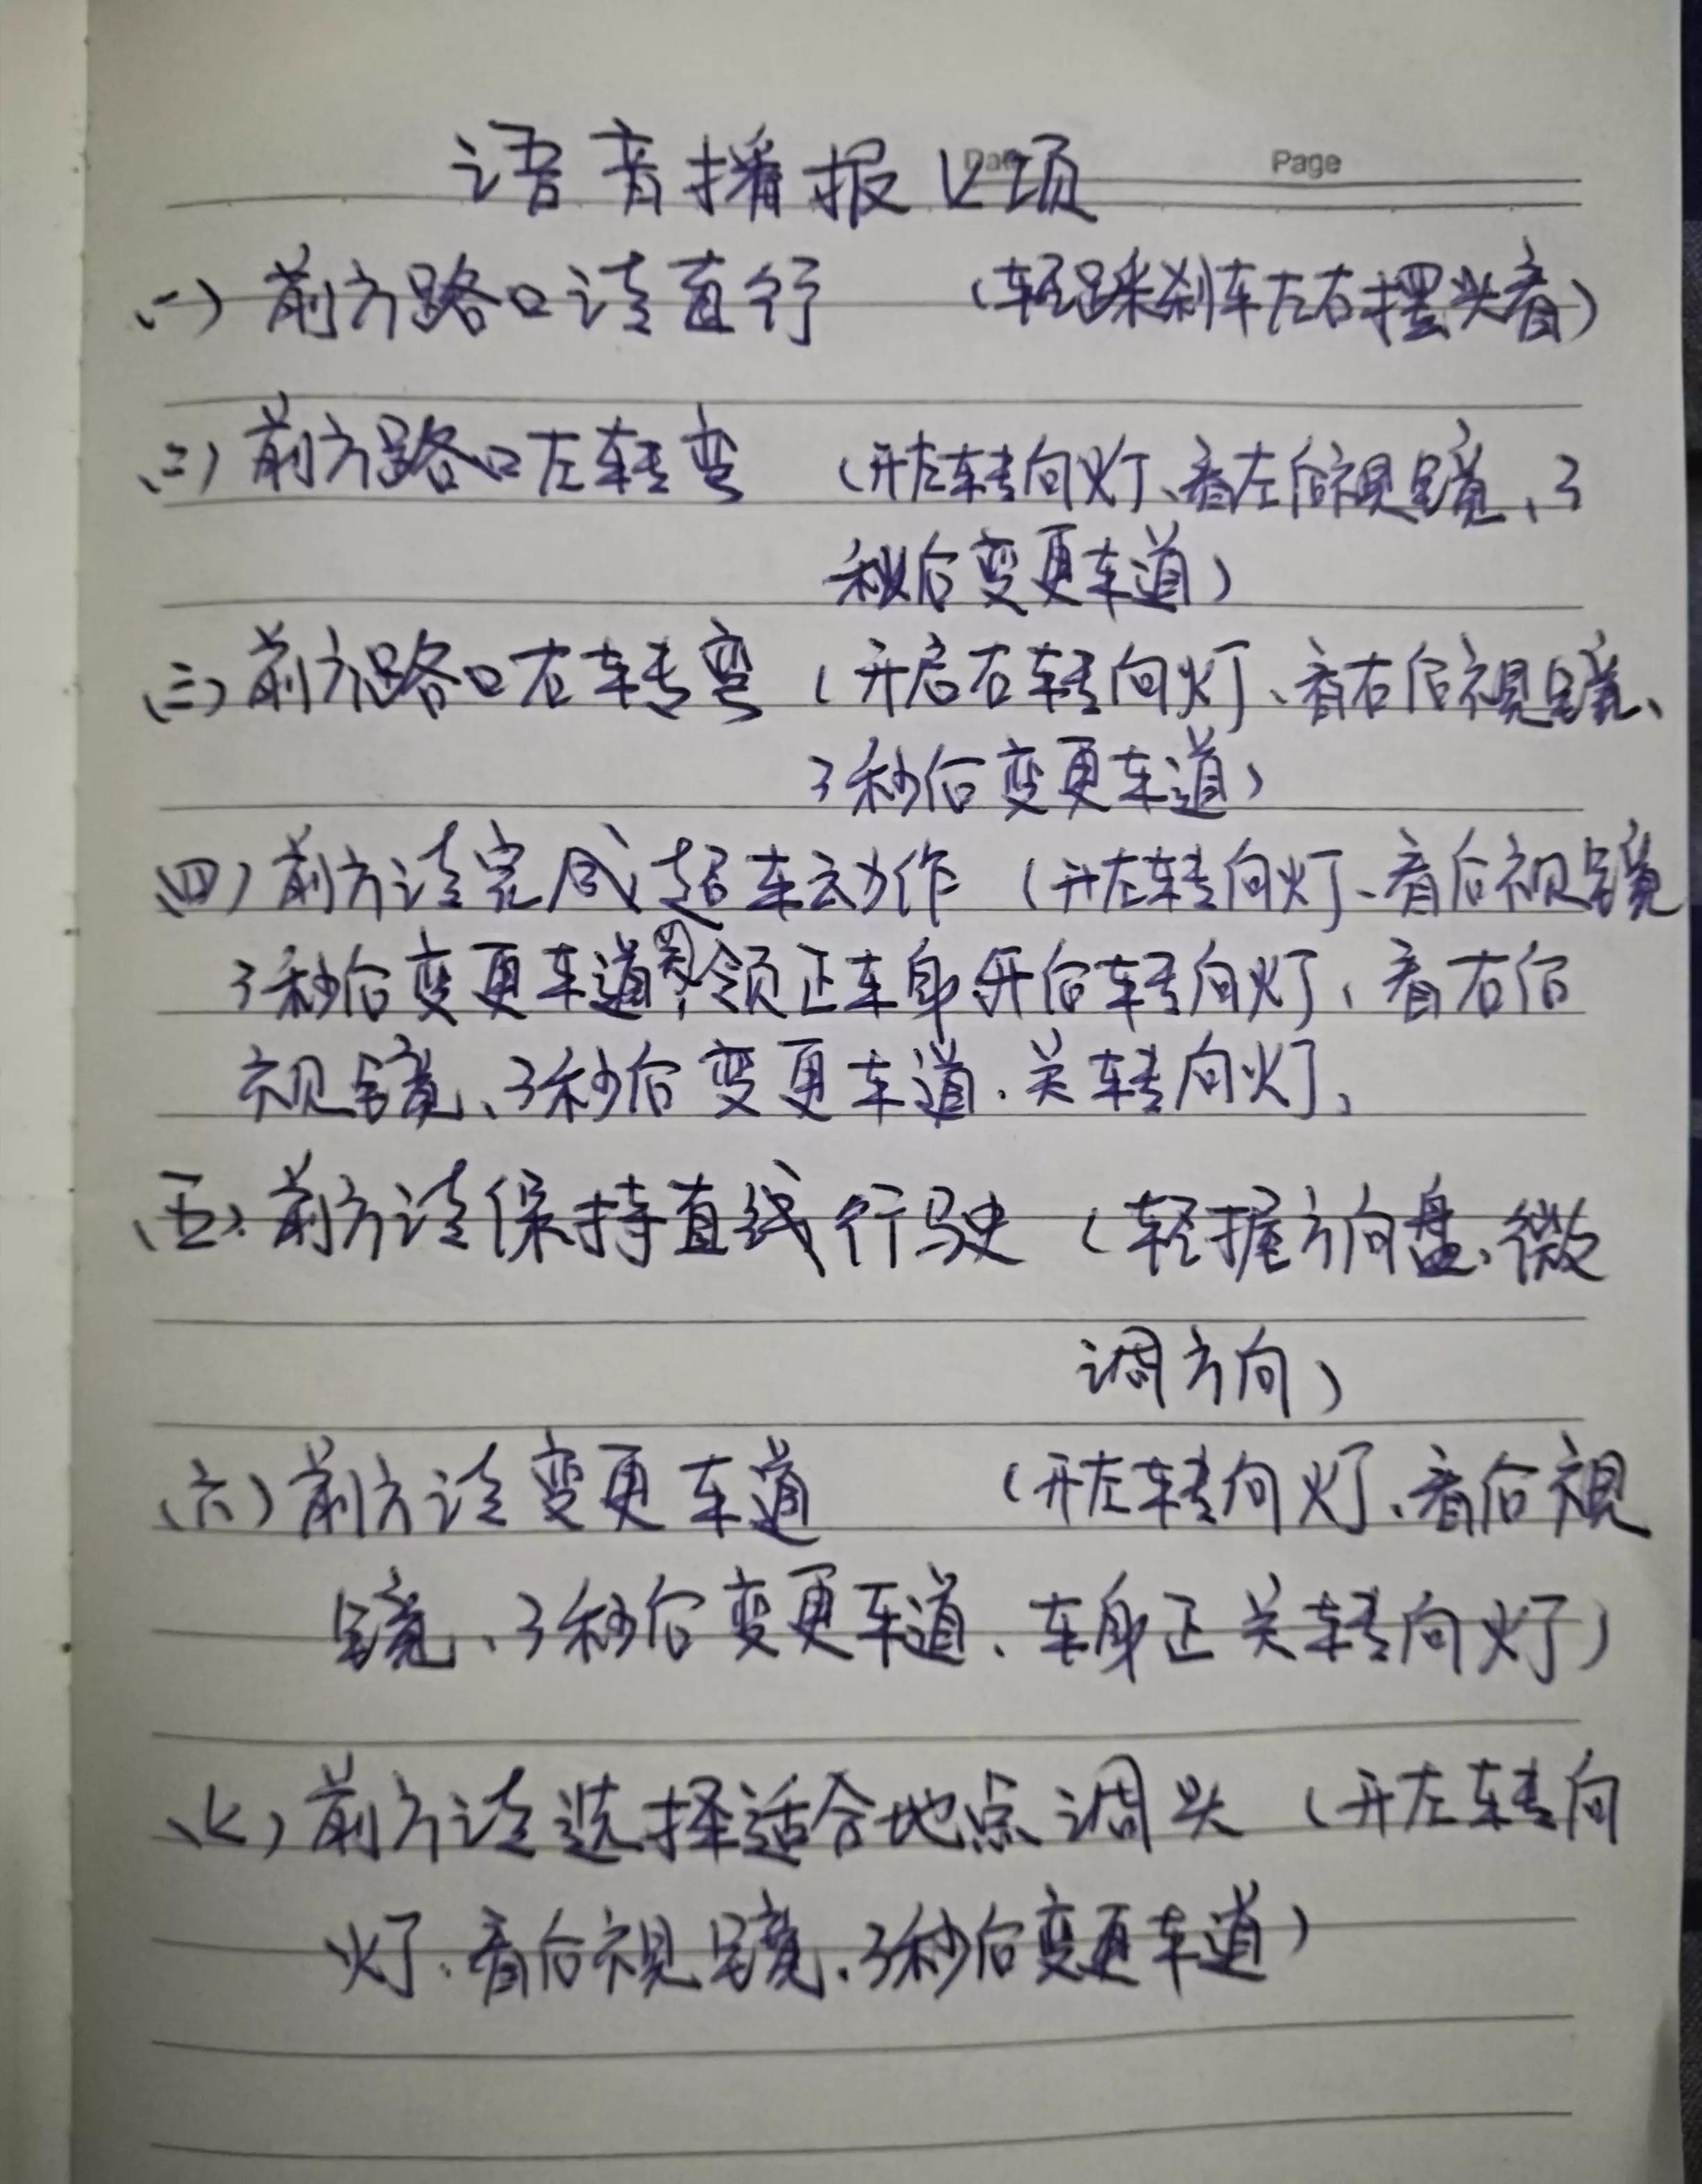 Page
语音播报七项
(一) 前方路口请直行 (轻踩刹车左右摆头看)
(二) 前方路口左转弯 (开左转向灯、看左后视镜、3
秒后变更车道)
(三) 前方路口右转弯 (开启右转向灯、看右后视镜、
3秒后变更车道)
(四) 前方请完成超车动作 (开左转向灯、看后视镜
3秒后变更车道,关 正车身开右转向灯、看右后
视镜、3秒后变更车道.关转向灯、
(五)、前方请保持直线行驶 (轻握方向盘、微
调方向)
(六) 前方请变更车道 (开左转向灯、看后视
镜、3秒后变更车道、车身正关转向灯)
(七) 前方请选择适合地点调头 (开左转向
灯、看后视镜.3秒后变更车道)